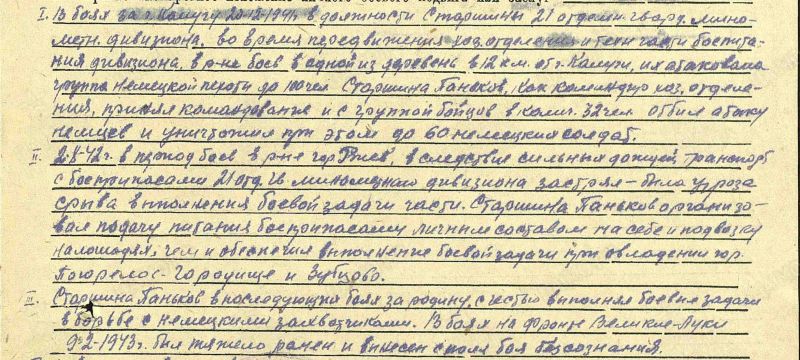 I. В боях за г. Калугу 20-12-1941 в должности Старшины 21 отдельн. гвард. мино-
метн. дивизиона, во время передвижения хоз. отделения и тех. части боепита-
ния дивизиона, в р-не боев в одной из деревень в 12 км. от г. Калуги, их атаковала
группа немецкой пехоты до 100 чел. Старшина Паньков, как командир хоз. отделе-
ния, принял командование и с группой бойцов в колич. 32 чел. отбил атаку
немцев и уничтожил при этом до 60 немецких солдат.
II. 2-8-42 г. в период боев в р-не гор. Ржев, в следствие сильных дождей, транспорт
с боеприпасами 21 отд. гв. минометного дивизиона застрял – была угроза
срыва выполнения боевой задачи части. Старшина Паньков организо-
вал подачу питания боеприпасами личным составом на себе и подвозку
на лошадях, чем и обеспечил выполнение боевой задачи при овладении гор.
Погорелое-Городище и Зубцово.
III. Старшина Паньков в последующих боях за родину, с честью выполнял боевые задачи
в борьбе с немецкими захватчиками. В боях на фронте Великие-Луки
9-2-1943 г. был тяжело ранен и вынесен с поля боя без сознания.